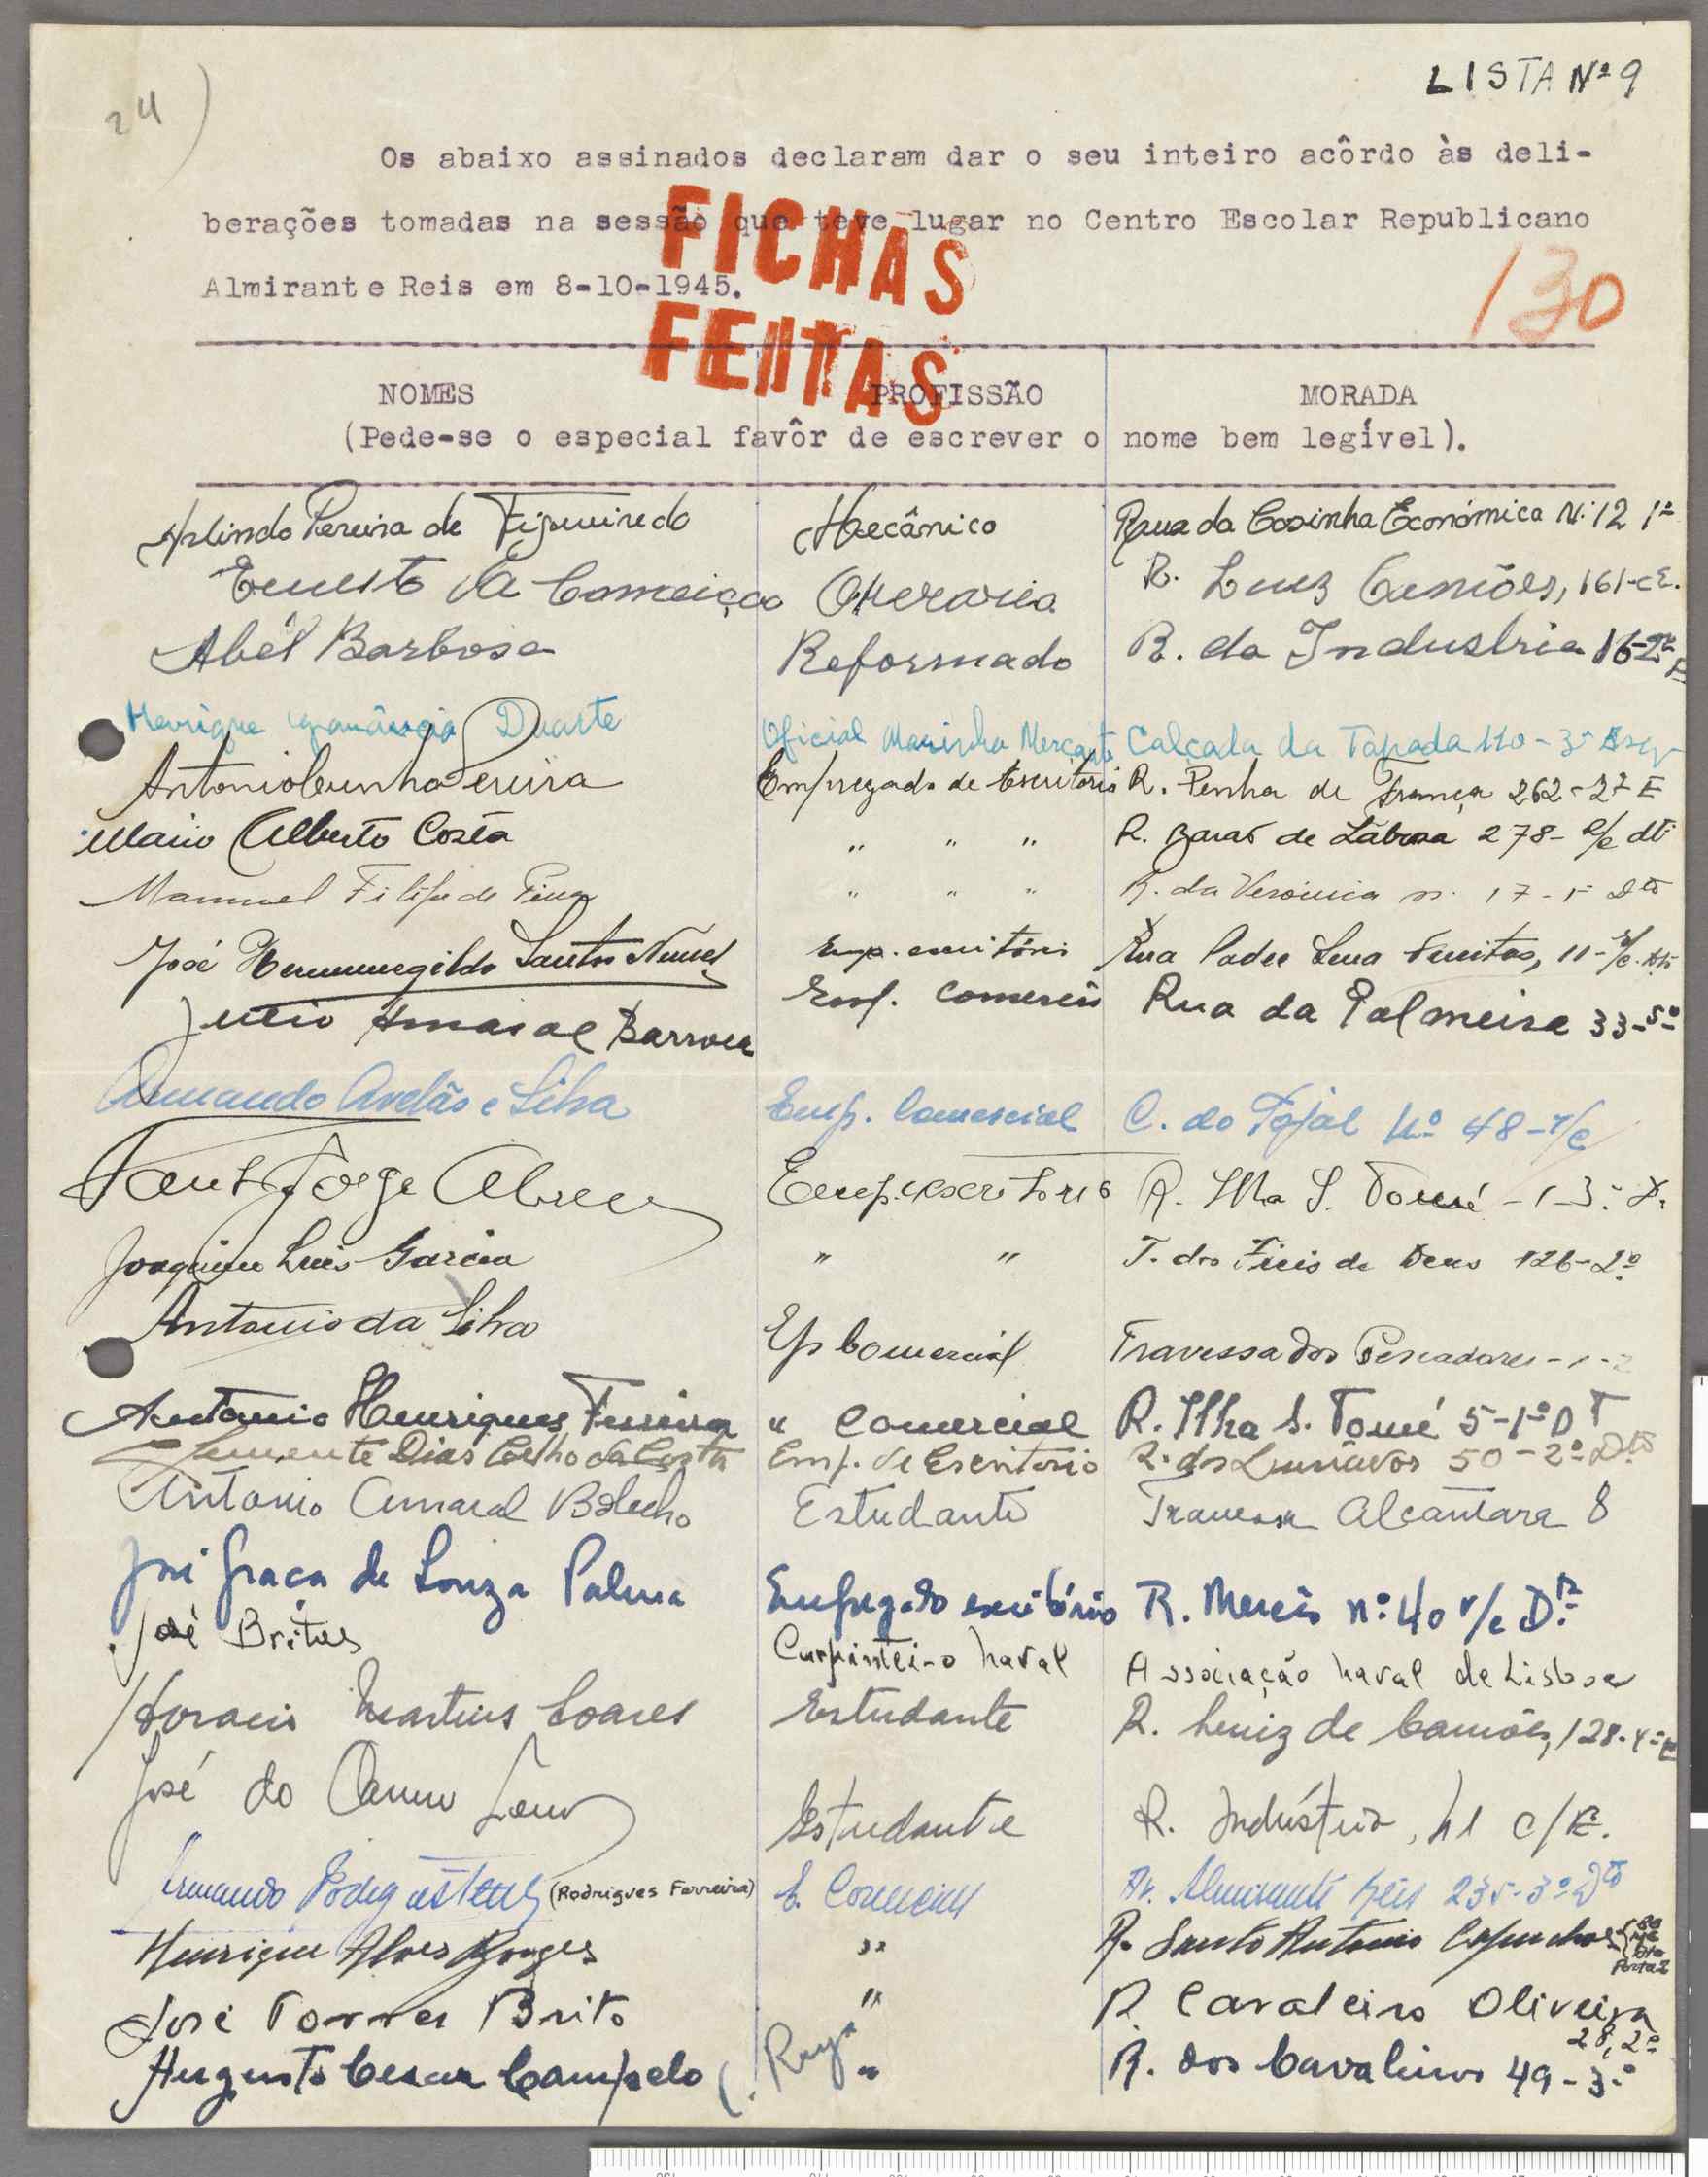 LISTA Nº 9
24)
Os abaixo assinados declaram dar o seu inteiro acôrdo às deli-
berações tomadas na sessão que teve lugar no Centro Escolar Republicano
Almirante Reis em 8-10-1945.
FICHAS
FEITAS
130
NOMES PROFISSÃO MORADA
(Pede-se o especial favôr de escrever o nome bem legível).
Arlindo Pereira de Figueiredo Mecânico Rua da Cosinha Económica Nº 12 1º
Ernesto da Conceiçao Operario R. Luiz Camões, 161-
Abél Barbosa Reformado R. da Industria 16-2º
Henrique Duarte Oficial Marinha Mercante Calçada da Tapada 110-3º
Antonio Cunha Pereira Empregado de Escritorio R. Penha de França 262-2º E
Mario Alberto Costa " " " R. de 278- r/c dtº
Manuel Filipe de Pina " " " R. da Veronica n. 17-1º Dto
José Hermenegildo Santos Nunes Emp. escritório Rua Padre Sena Freitas, 11-r/c.
Julio Amaral Barroca Emp. comercio Rua da Palmeira 33-5º
Armando Avelãs e Silva Emp. Comercial C. do Tojal Nº 48-r/c
Jorge Abreu Emp. escritorio R. Ilha S. Tomé -1-3.º D.
Joaquim Luis Garcia " " T. dos Fieis de Deus 126-2º
Antonio da Silva Ep Comercial Travessa dos Pescadores-1-2
Antonio Henriques Ferreira " Comercial R. Ilha S. Tomé 5-1º DT
Clemente Dias Coelho da Costa Emp. de Escritorio R. dos Lusiadas 50-2º Dto
Antonio Amaral Botelho Estudante Travessa Alcantara 8
José Graça de Souza Palma Empregado escritório R. Mercês nº 40 r/c D.to
José Brites Carpinteiro naval Associação naval de Lisboa
Horacio Martins Soares Estudante R. Luiz de Camões, 128-4º E
José do Carmo Estudante R. Indústria, c/E.
Armando (Rodrigues Ferreira) E. Comercial Av. Almirante Reis 235-3º Dto
Henrique Alves Borges " R. Santo Antonio Capuchos
Porta 2
José Torres Brito " R. Cavaleiro Oliveira
28, 2º
Augusto Cesar Campelo " R. dos Cavaleiros 49-3º